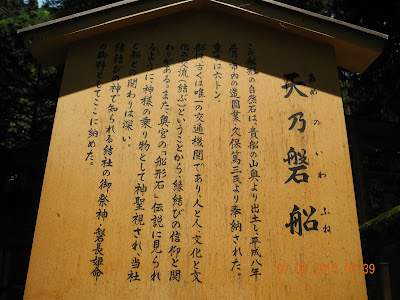 天乃磐船
あめ の いわ ふね
この船形の自然石は、貴船の山奥より出土し、平成八年
六月市内の造園業、久保篤三氏より奉納された。
重量は六トン。
船は古くは唯一の交通機関であり、人と人・文化と文
化の交流(結ぶ)ということから、縁結びの信仰と関
わりがある。また、奥宮の「船形石」伝説に見られ
るように、神様の乗り物として神聖視され、当社
と船との関わりは深い。
縁結びの神で知られる結社の御祭神・磐長姫命
の御料としてここに納めた。